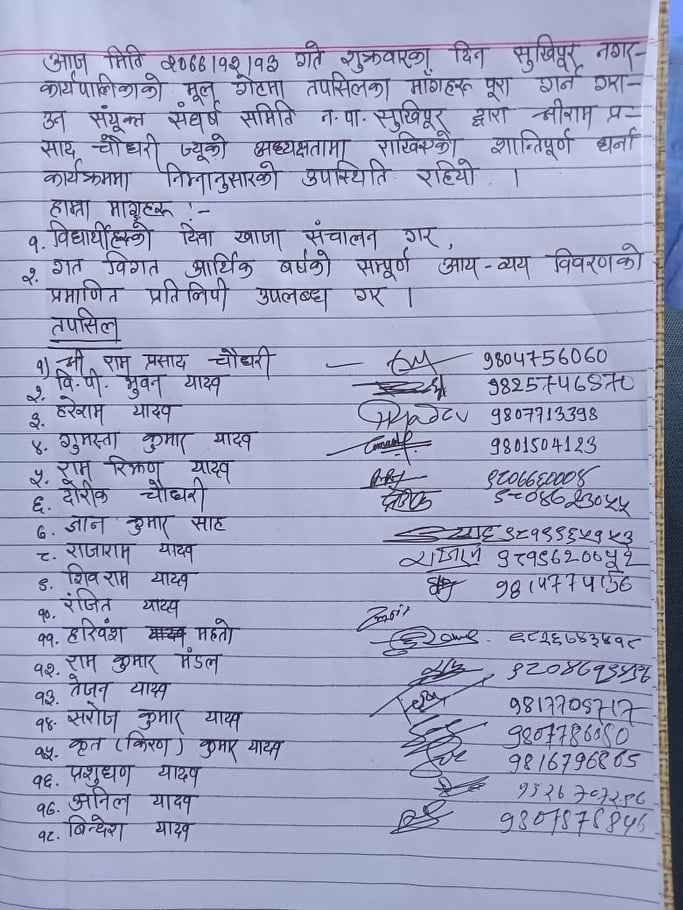 आज मिति २०७७।१२।१३ गते शुक्रवारका दिन सुखिपूर नगर-
कार्यपालिकाको मूल गेटमा तपसिलका माँगहरू पूरा गर्न गरा-
उन संयूक्त संघर्ष समिति न.पा. सुखिपूर द्वारा श्रीराम प्र-
साद चौधरी ज्यूको अध्यक्षतामा राखिएको शान्तिपूर्ण धर्ना
कार्यक्रममा निम्नानुसारको उपस्थिति रहियो ।
हाम्रा मागहरू :-
१. विद्यार्थीहरूको दिवा खाजा संचालन गर,
२. गत विगत आर्थिक वर्षको सम्पूर्ण आय-व्यय विवरणको
प्रमाणित प्रतिलिपी उपलब्ध गर ।
तपसिल
१) श्री राम प्रसाद चौधरी — 9804756060
२. वि.पी. भुवन यादव
३. हरेराम यादव 9807713398
४. गुमस्ता कुमार यादव 9801504123
५. राम यादव
६. चौधरी
७. ज्ञान कुमार साह
८. राजाराम यादव राजाराम
९. शिवराम यादव 9814774156
१०. रंजित यादव
११. हरिवंश महतो
१२. राम कुमार मंडल
१३. तेजन यादव 9817705717
१४. सरोज कुमार यादव 9807786080
१५. कृत (किरण) कुमार यादव 9816796805
१६. यादव
१७. अनिल यादव
१८. बिन्देश यादव 9807878846